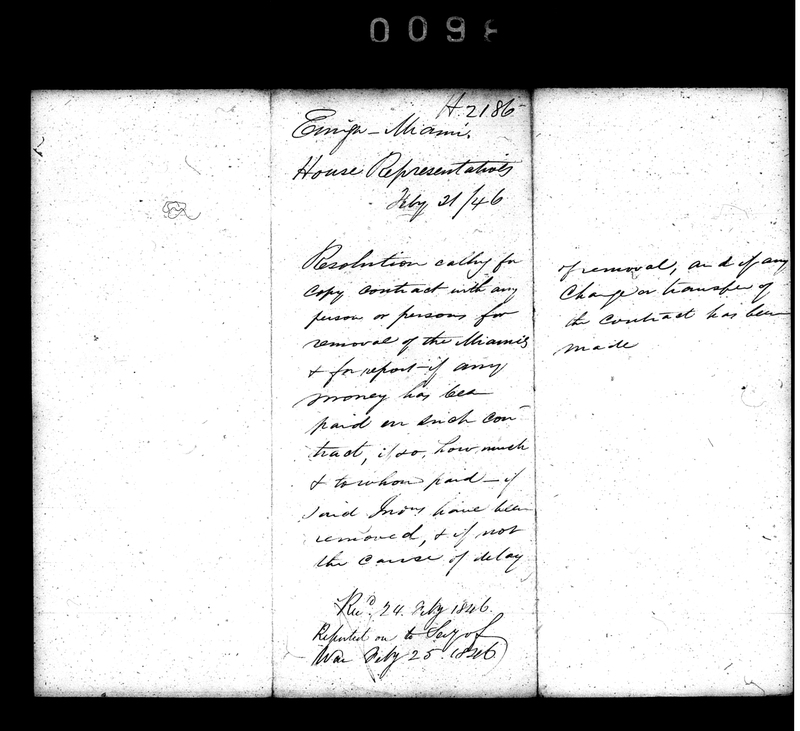 0098
H. 2186
Emign - Miami.
House Representatives
Feby 21/46
Resolution callg for
copy contract with any
person or persons for
removal of the Miamis
& for report if any
money has been
paid on such con-
tract, if so, how much
& to whom paid - if
said Inds have been
removed, & if not
the cause of delay
Recd. 24. Feby 1846.
Reported on to Secy of
War Feby 25. 1846
of removal, and if any
change or transfer of
the contract has been
made